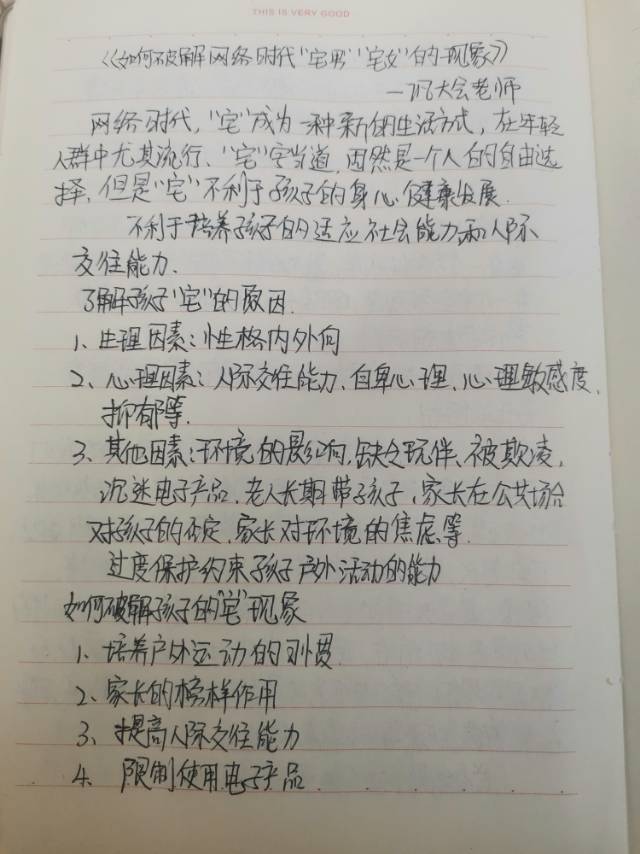 THIS IS VERY GOOD
《如何破解网络时代"宅男""宅女"的现象》
大会老师
网络时代,"宅"成为一种新的生活方式,在年轻
人群中尤其流行、"宅"字当道,固然是一个人的自由选
择,但是"宅"不利于孩子的身心健康发展.
不利于培养孩子的适应社会能力和人际
交往能力.
了解孩子"宅"的原因.
1、生理因素:性格内外向
2、心理因素:人际交往能力、自卑心理、心理敏感度、
抑郁等.
3、其他因素:环境的影响,缺乏玩伴、被欺凌,
沉迷电子产品,老人长期带孩子,家长在公共场合
对孩子的否定,家长对环境的焦虑等.
过度保护约束孩子户外活动的能力
如何破解孩子的"宅"现象
1、培养户外运动的习惯.
2、家长的榜样作用
3、提高人际交往能力
4、限制使用电子产品